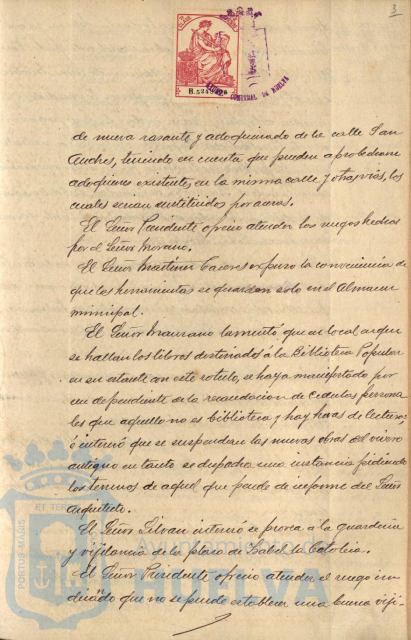 3
B.5249828
de nueva rasante y adoquinado de la calle San
Andres, teniendo en cuenta que pueden aprobecharse
adoquines existentes en la misma calle y otras vías, los
cuales serian sustituidos por aceras.
El Señor Presidente ofrecio atender los ruegos hechos
por el Señor Moreno.
El Señor Martinez Caceres expuso la conveniencia de
que las herramientas se guarden solo en el Almacen
municipal.
El Señor lamentó que en local
se hallan los libros destinados á la Biblioteca Popular
en su estante con este rotulo, se haya manifestado por
un dependiente de la recaudacion de cedulas persona
les que aquello no es biblioteca y hay horas de lectura;
é interesó que se suspendan las nuevas obras del vivero
antiguo en tanto se despacha una instancia pidiendo
los terrenos de aquel que pende de informe del Señor
Arquitecto.
El Señor Silvan interesó se provea á la guarderia
y vigilancia de la plaza de Isabel la Catolica.
El Señor Presidente ofrecio atender el ruego in
dicado que no se puede establecer una buena vigi-
PORTUS MARIS
ET TER
Ayuntamiento de
HUELVA